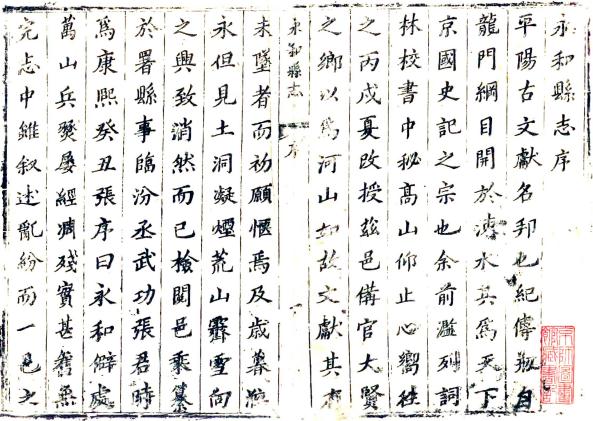 永和縣志序
平陽古文獻名邦也紀傳剏自
龍門綱目開於涑水共為天下
京國史記之宗也余前濫列詞
林校書中秘高山仰止心嚮往
之丙戌夏改授茲邑備官大賢
之鄉以為河山如故文獻其有
永和縣志 序
未墜者而初願愜焉及歲暮涖
永但見土洞凝煙荒山霽雪向
之興致消然而已檢閱邑乘纂
於署縣事臨汾丞武功張君時
為康熙癸丑張序曰永和僻處
萬山兵燹屢經凋殘實甚舊無
完志中雖叙述亂紛而一邑之
京師圖書
館藏書